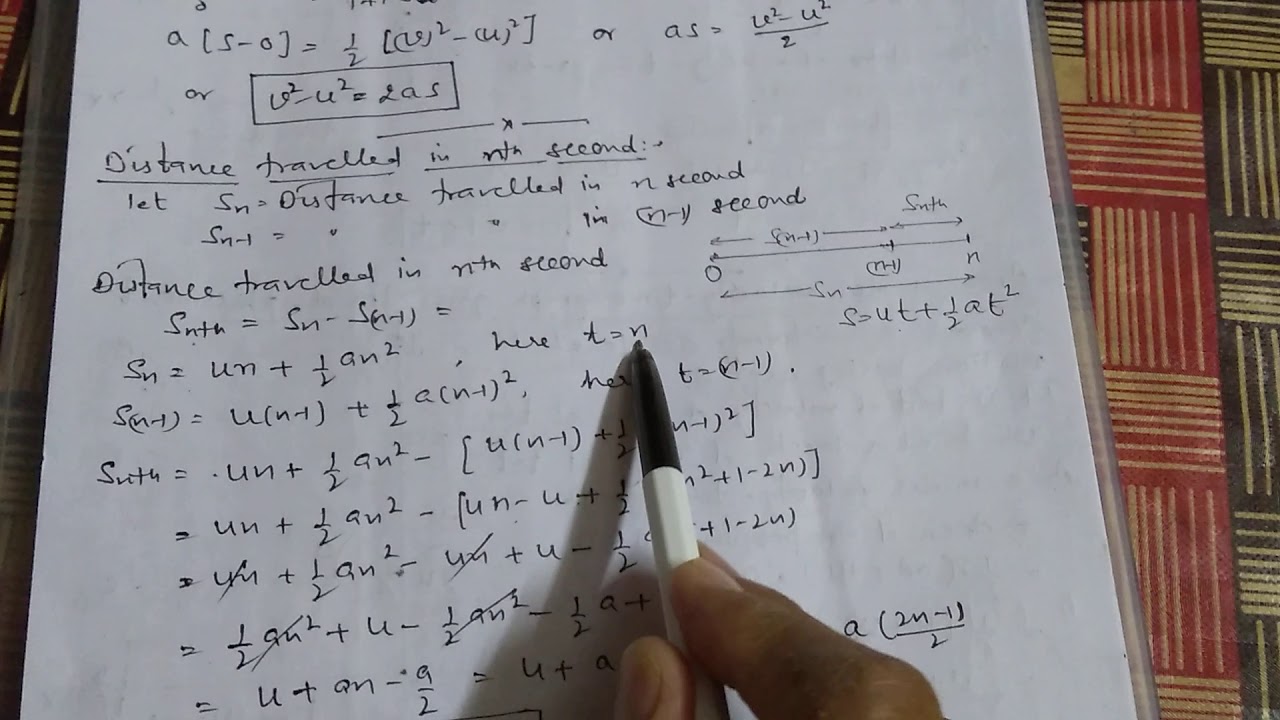 a [S-0] = 1/2 [(v)² - (u)²] or as = v² - u² / 2
or v² - u² = 2as
x
Distance travelled in nth second:-
let Sn = Distance travelled in n second
Sn-1 = " " in (n-1) second
S(n-1) Snth
0 (n-1) n
Sn
Distance travelled in nth second
Snth = Sn - S(n-1) =
S = ut + 1/2 at²
Sn = un + 1/2 an², here t = n
S(n-1) = u(n-1) + 1/2 a(n-1)², t = (n-1).
Snth = un + 1/2 an² - [u(n-1) + 1/2 n-1)²]
= un + 1/2 an² - [un - u + 1/2 n² + 1 - 2n)]
= un + 1/2 an² - un + u - 1/2 + 1 - 2n)
= 1/2 an² + u - 1/2 an² - 1/2 a +
a (2n-1)/2
= u + an - a/2 = u + a